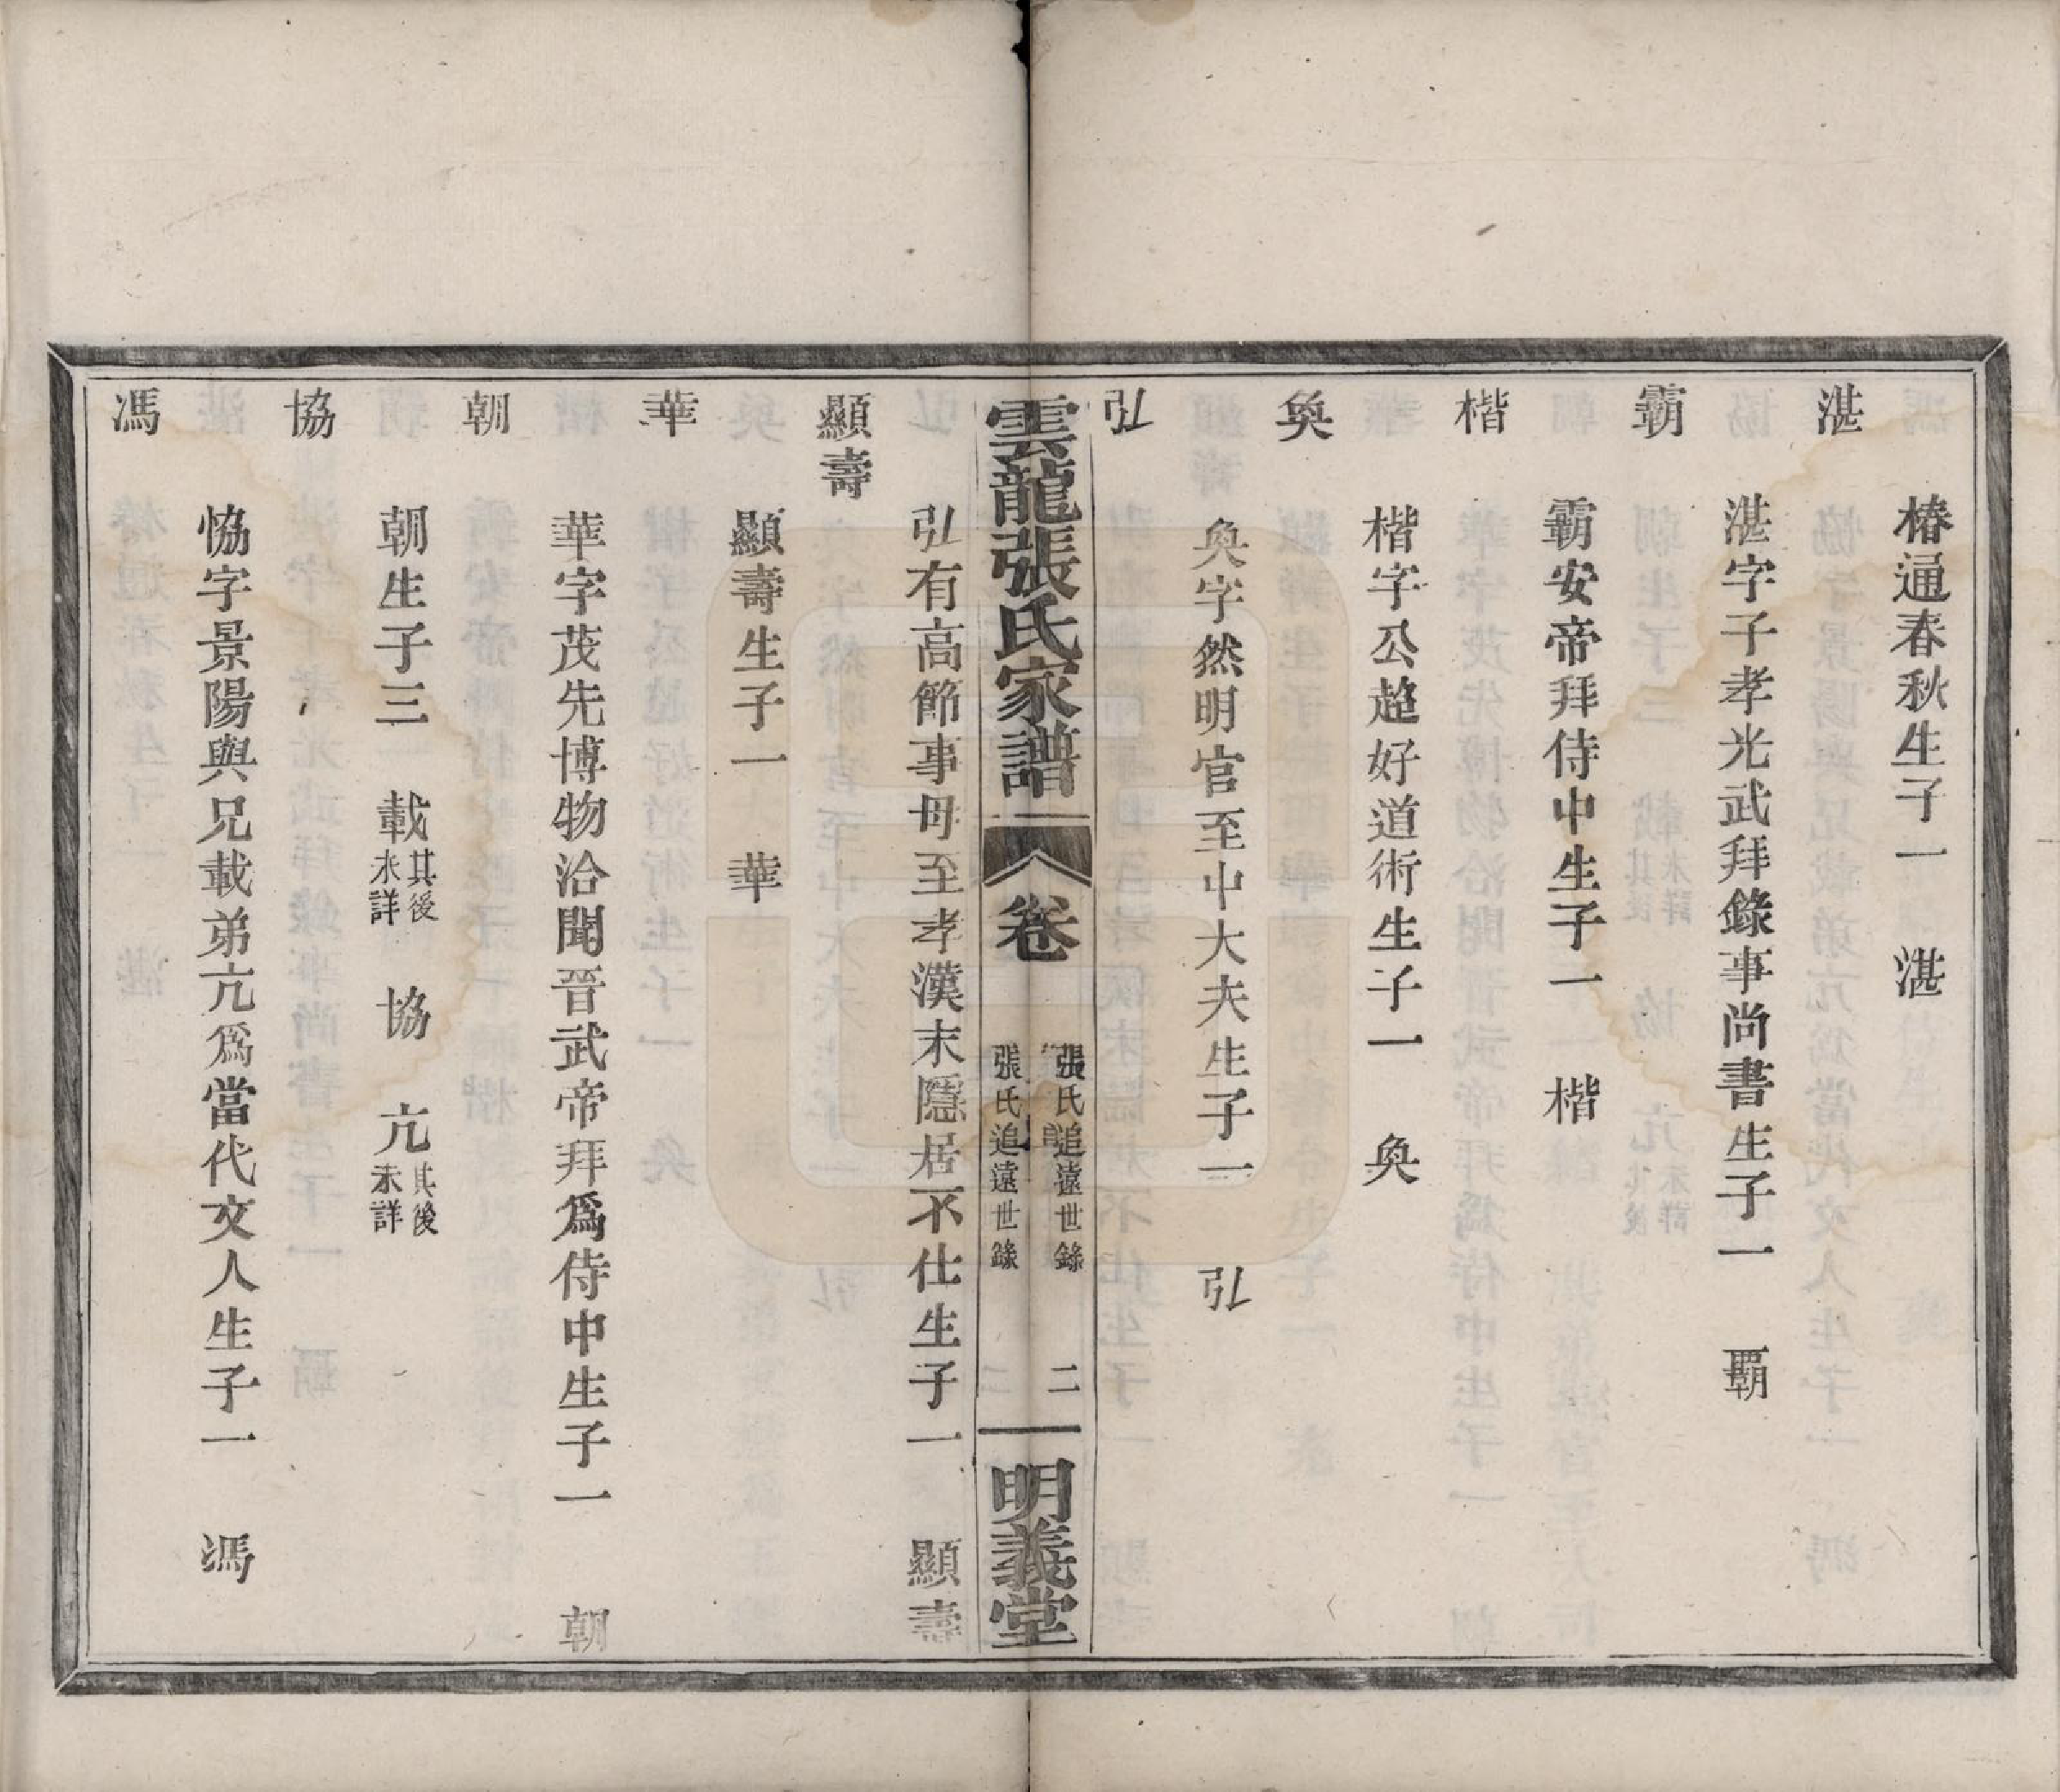 椿通春秋生子一　湛
湛
湛字子孝光武拜錄事尚書生子一　霸
霸
霸安帝拜侍中生子一　楷
楷
楷字公超好道術生子一　奐
奐
奐字然明官至中大夫生子一　弘
弘
雲龍張氏家譜　卷　張氏追遠世錄　張氏追遠世錄　二　明義堂
弘有高節事母至孝漢末隱居不仕生子一　顯壽
顯壽
顯壽生子一　華
華
華字茂先博物洽聞晉武帝拜爲侍中生子一　朝
朝
朝生子三　載其後未詳　協　亢其後未詳
協
恊字景陽與兄載弟亢爲當代文人生子一　馮
馮